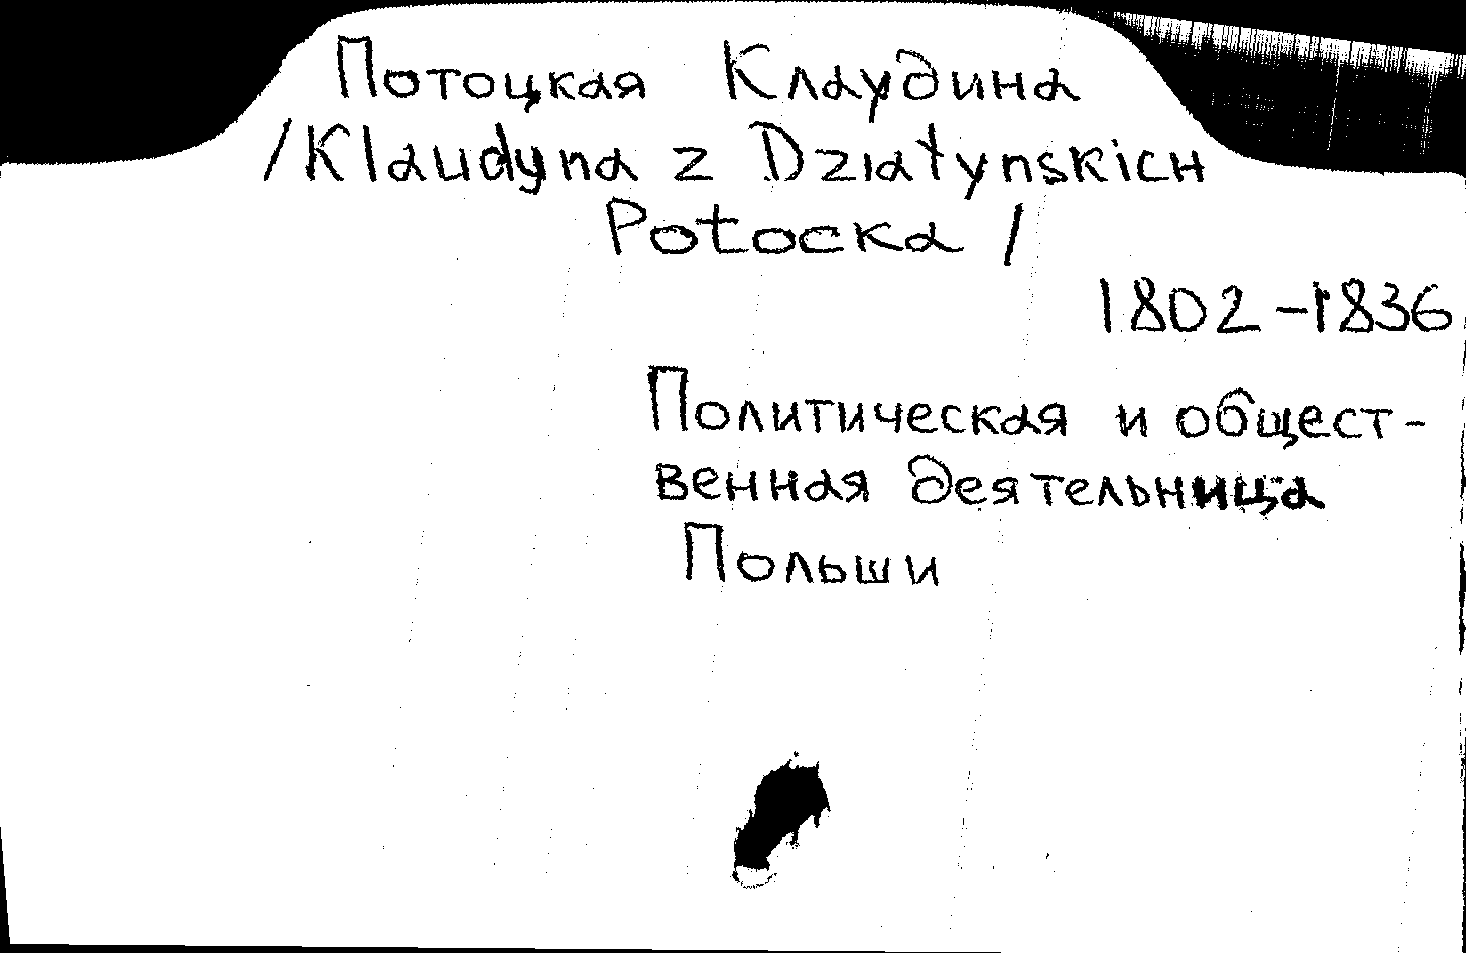 Потоцкая Клаудина
/Klaudyna z Dziatynskich
Potocka /
1802-1836
Политическая и общест-
венная деятельница
Польши